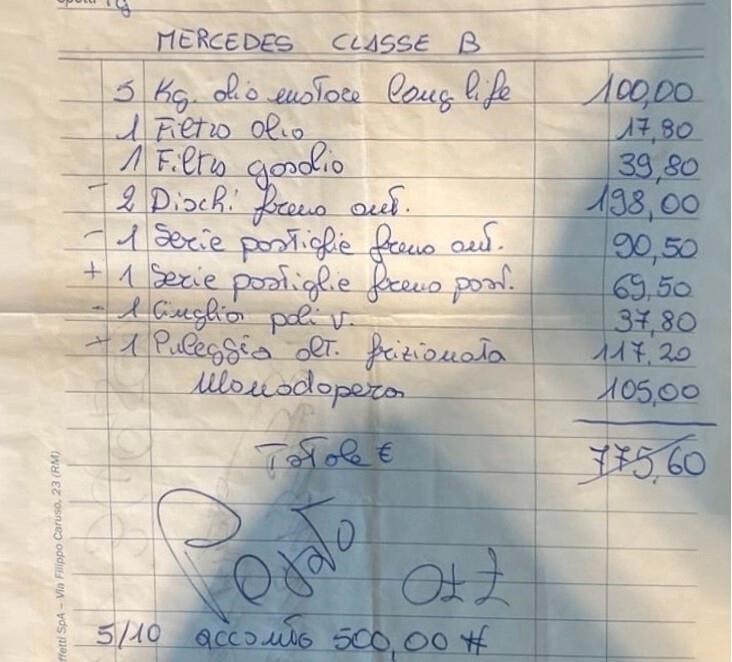 MERCEDES CLASSE B
5 Kg. olio motore long life 100,00
1 Filtro olio 17,80
1 Filtro gasolio 39,80
- 2 Dischi freno ant. 198,00
- 1 Serie pastiglie freno ant. 90,50
+ 1 Serie pastiglie freno post. 69,50
- 1 Cinghia poli v. 37,80
+ 1 Puleggia alt. frizionata 117,20
Manodopera 105,00
Totale € 775,60
5/10 acconto 500,00 #
ffetti SpA – Via Filippo Caruso, 23 (RM)